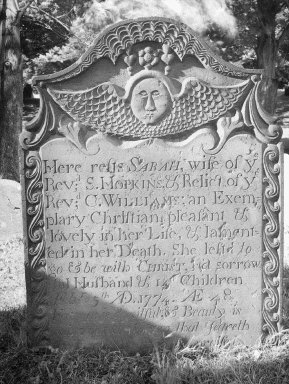 Here rests SARAH, wife of yͤ
Revͬ S. HOPKINS, & Relict of yͤ
Revͬ C. WILLIAMS: an Exem-
plary Christian, pleasant &
lovely in her Life, & lament-
ed in her Death. She left to
go & be with CHRIST, and sorrow
Husband & Children
5th A.D. 1774. Æ 48.
Beauty is
that feareth